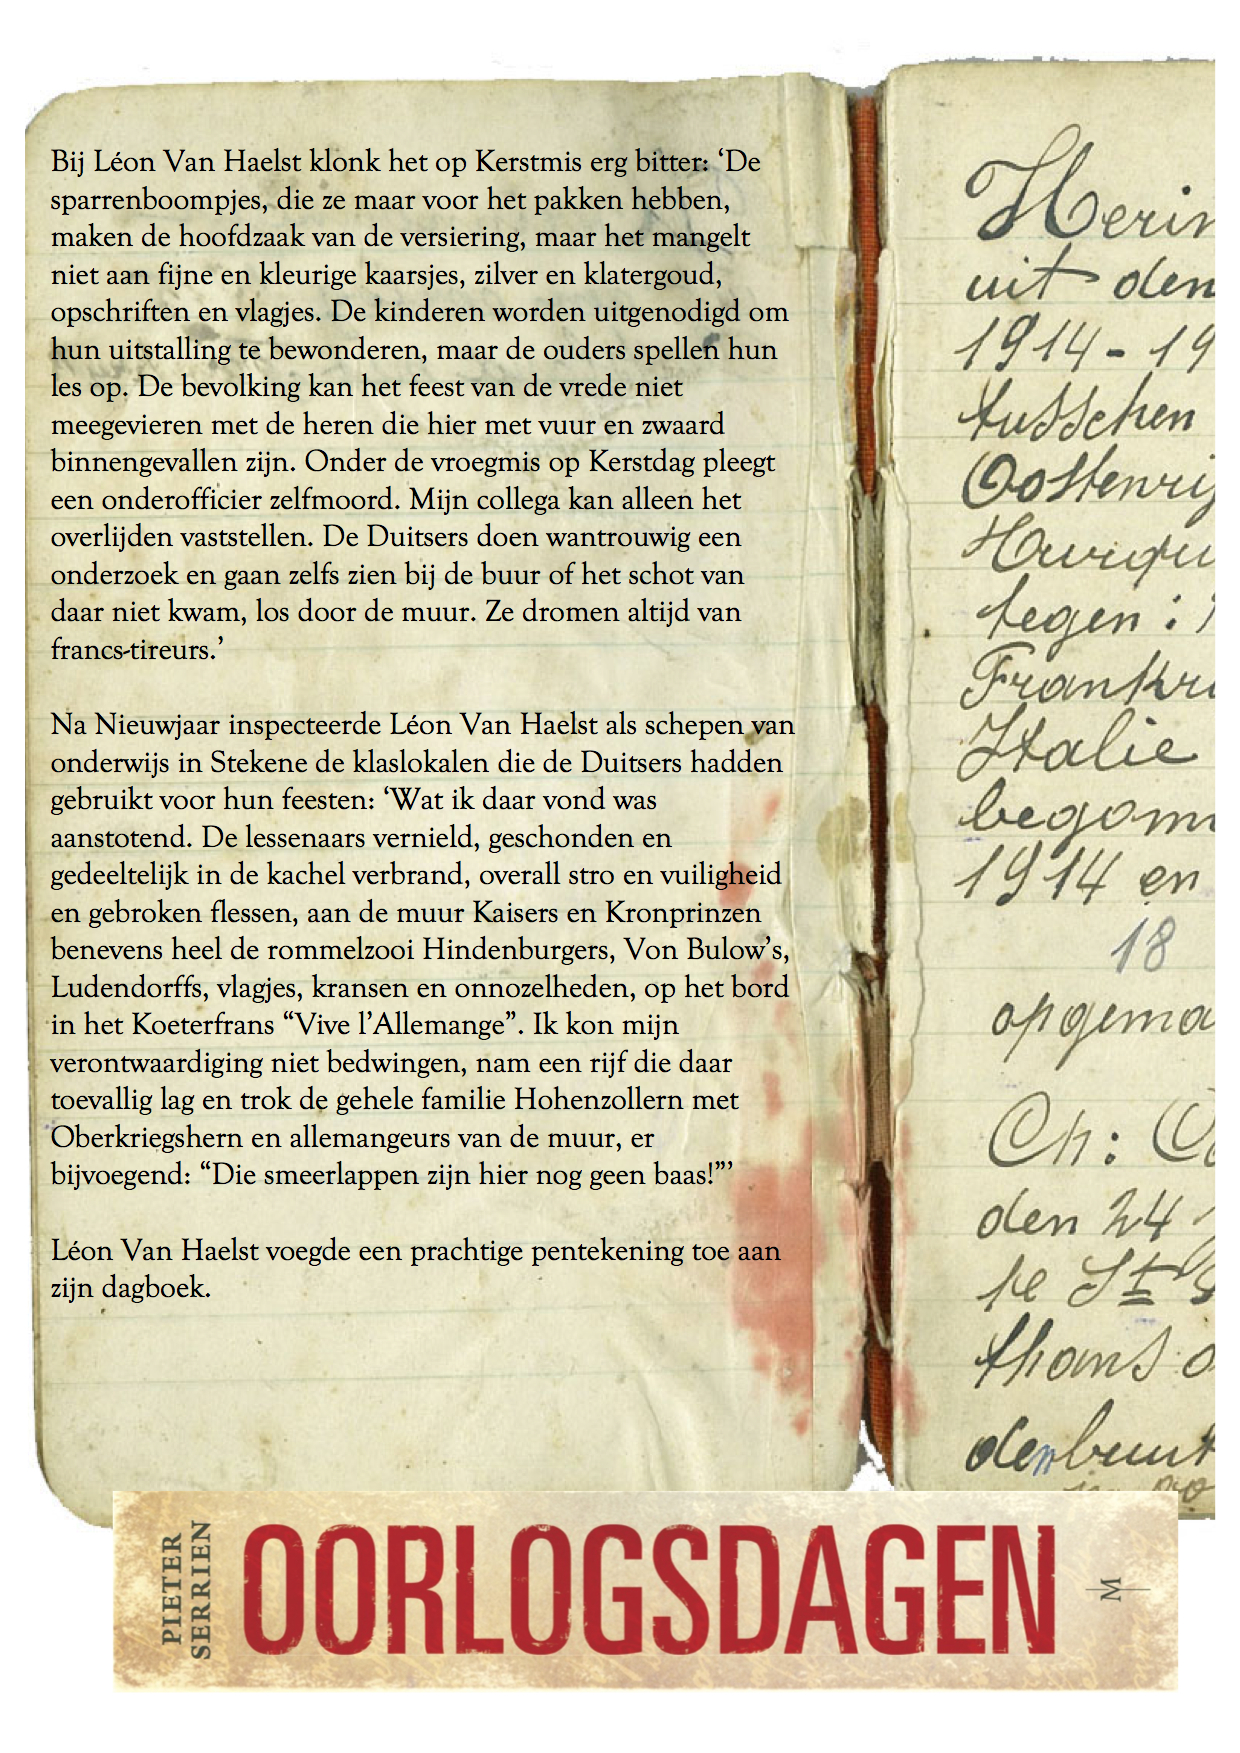 Bij Léon Van Haelst klonk het op Kerstmis erg bitter: ‘De
sparrenboompjes, die ze maar voor het pakken hebben,
maken de hoofdzaak van de versiering, maar het mangelt
niet aan fijne en kleurige kaarsjes, zilver en klatergoud,
opschriften en vlagjes. De kinderen worden uitgenodigd om
hun uitstalling te bewonderen, maar de ouders spellen hun
les op. De bevolking kan het feest van de vrede niet
meegevieren met de heren die hier met vuur en zwaard
binnengevallen zijn. Onder de vroegmis op Kerstdag pleegt
een onderofficier zelfmoord. Mijn collega kan alleen het
overlijden vaststellen. De Duitsers doen wantrouwig een
onderzoek en gaan zelfs zien bij de buur of het schot van
daar niet kwam, los door de muur. Ze dromen altijd van
francs-tireurs.’
Na Nieuwjaar inspecteerde Léon Van Haelst als schepen van
onderwijs in Stekene de klaslokalen die de Duitsers hadden
gebruikt voor hun feesten: ‘Wat ik daar vond was
aanstotend. De lessenaars vernield, geschonden en
gedeeltelijk in de kachel verbrand, overall stro en vuiligheid
en gebroken flessen, aan de muur Kaisers en Kronprinzen
benevens heel de rommelzooi Hindenburgers, Von Bulow’s,
Ludendorffs, vlagjes, kransen en onnozelheden, op het bord
in het Koeterfrans “Vive l’Allemange”. Ik kon mijn
verontwaardiging niet bedwingen, nam een rijf die daar
toevallig lag en trok de gehele familie Hohenzollern met
Oberkriegshern en allemangeurs van de muur, er
bijvoegend: “Die smeerlappen zijn hier nog geen baas!”’
Léon Van Haelst voegde een prachtige pentekening toe aan
zijn dagboek.
Herin
uit den
1914-19
tusschen
Oostenrij
tegen:
Frankr
Italie
begonn
1914 en
18
opgema
Ch:
den 24
te St
thans
PIETER
SERRIEN
OORLOGSDAGEN
M